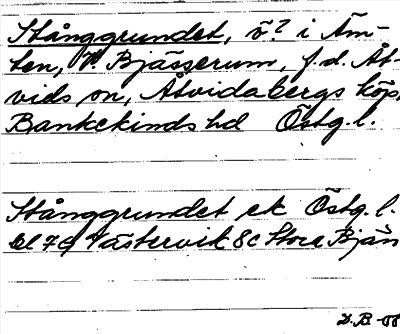 Stånggrundet, ö? i Äm-
ten, N. Bjässerum, f.d. Åt-
vids sn, Åtvidabergs köp,
Bankekinds hd Östg.l.
Stånggrundet ek Östg.l.
bl 74 Västervik 8c Stora Bjän
D.B.